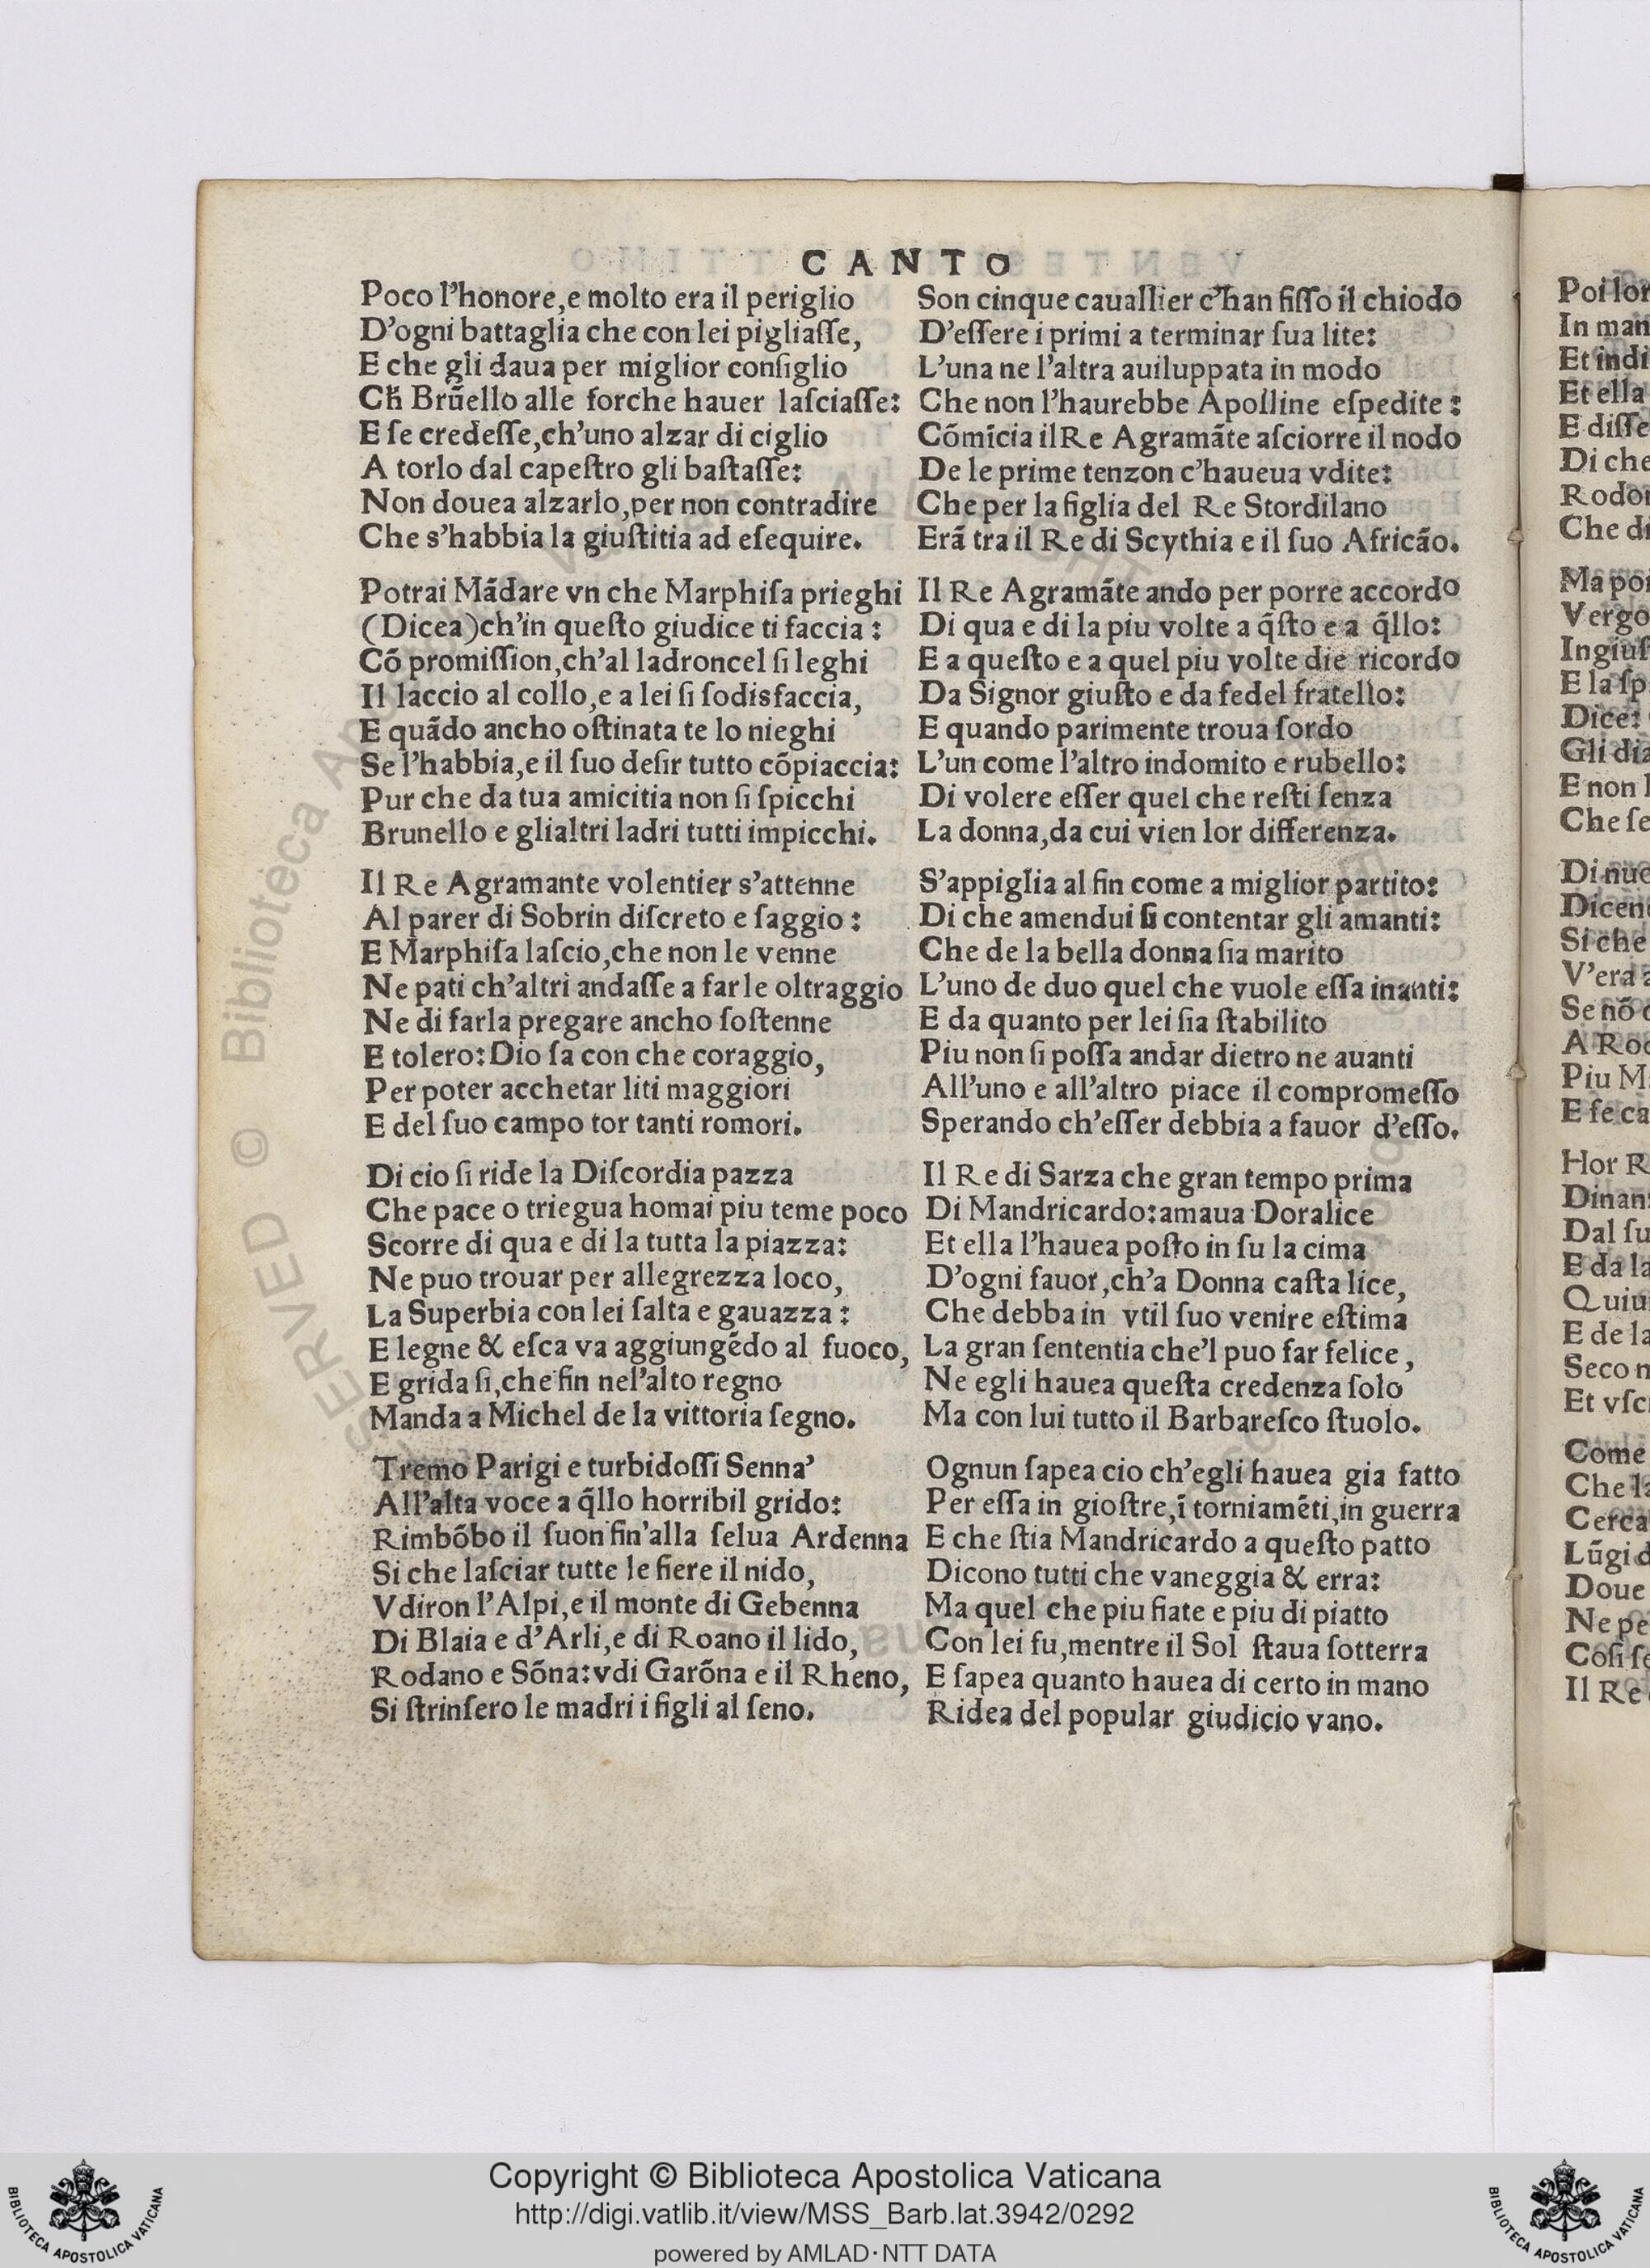 CANTO
Poco l'honore,e molto era il periglio
D'ogni battaglia che con lei pigliaſſe,
E che gli daua per miglior conſiglio
Cħ Brũello alle forche hauer laſciaſſe:
E ſe credeſſe,ch'uno alzar di ciglio
A torlo dal capeſtro gli baſtaſſe:
Non douea alzarlo,per non contradire
Che s'habbia la giuſtitia ad eſequire.
Potrai Mãdare vn che Marphiſa prieghi
(Dicea)ch'in queſto giudice ti faccia :
Cõ promiſſion,ch'al ladroncel ſi leghi
Il laccio al collo,e a lei ſi ſodisfaccia,
E quãdo ancho oſtinata te lo nieghi
Se l'habbia,e il ſuo deſir tutto cõpiaccia:
Pur che da tua amicitia non ſi ſpicchi
Brunello e glialtri ladri tutti impicchi.
Il Re Agramante volentier s'attenne
Al parer di Sobrin diſcreto e ſaggio :
E Marphiſa laſcio,che non le venne
Ne pati ch'altri andaſſe a farle oltraggio
Ne di farla pregare ancho ſoſtenne
E tolero:Dio ſa con che coraggio,
Per poter acchetar liti maggiori
E del ſuo campo tor tanti romori.
Di cio ſi ride la Diſcordia pazza
Che pace o triegua homai piu teme poco
Scorre di qua e di la tutta la piazza:
Ne puo trouar per allegrezza loco,
La Superbia con lei ſalta e gauazza :
E legne & eſca va aggiungẽdo al fuoco,
E grida ſi,che fin nel'alto regno
Manda a Michel de la vittoria ſegno.
Tremo Parigi e turbidoſſi Senna'
All'alta voce a q̃llo horribil grido:
Rimbõbo il ſuon fin'alla ſelua Ardenna
Si che laſciar tutte le fiere il nido,
Vdiron l'Alpi,e il monte di Gebenna
Di Blaia e d'Arli,e di Roano il lido,
Rodano e Sõna:vdi Garõna e il Rheno,
Si ſtrinſero le madri i figli al ſeno.
Son cinque cauallier c'han fiſſo il chiodo
D'eſſere i primi a terminar ſua lite:
L'una ne l'altra auiluppata in modo
Che non l'haurebbe Apolline eſpedite :
Cõmĩcia il Re Agramãte aſciorre il nodo
De le prime tenzon c'haueua vdite:
Che per la figlia del Re Stordilano
Erã tra il Re di Scythia e il ſuo Africão.
Il Re Agramãte ando per porre accordo
Di qua e di la piu volte a q̃ſto e a q̃llo:
E a queſto e a quel piu volte die ricordo
Da Signor giuſto e da fedel fratello:
E quando parimente troua ſordo
L'un come l'altro indomito e rubello:
Di volere eſſer quel che reſti ſenza
La donna,da cui vien lor differenza.
S'appiglia al fin come a miglior partito:
Di che amendui ſi contentar gli amanti:
Che de la bella donna ſia marito
L'uno de duo quel che vuole eſſa inanti:
E da quanto per lei ſia ſtabilito
Piu non ſi poſſa andar dietro ne auanti
All'uno e all'altro piace il compromeſſo
Sperando ch'eſſer debbia a fauor d'eſſo.
Il Re di Sarza che gran tempo prima
Di Mandricardo:amaua Doralice
Et ella l'hauea poſto in ſu la cima
D'ogni fauor,ch'a Donna caſta lice,
Che debba in vtil ſuo venire eſtima
La gran ſententia che'l puo far felice,
Ne egli hauea queſta credenza ſolo
Ma con lui tutto il Barbareſco ſtuolo.
Ognun ſapea cio ch'egli hauea gia fatto
Per eſſa in gioſtre,ĩ torniamẽti,in guerra
E che ſtia Mandricardo a queſto patto
Dicono tutti che vaneggia & erra:
Ma quel che piu fiate e piu di piatto
Con lei fu,mentre il Sol ſtaua ſotterra
E ſapea quanto hauea di certo in mano
Ridea del popular giudicio vano.
Poi lor
In man
Et indi
Et ella
E diſſe
Di che
Rodo
Che di
Ma poi
Vergo
Ingiuſ
E la ſp
Dice:
Gli dia
E non
Che ſe
Di nuo
Dicen
Si che
V'era a
Se nõ
A Rod
Piu M
E fe ca
Hor R
Dinan
Dal ſu
E da la
Quiu
E de la
Seco n
Et vſc
Come
Che la
Cerca
Lũgi d
Doue
Ne pe
Coſi ſe
Il Re
© Biblioteca Ap
SERVED
Copyright © Biblioteca Apostolica Vaticana
http://digi.vatlib.it/view/MSS_Barb.lat.3942/0292
powered by AMLAD·NTT DATA
BIBLIOTECA APOSTOLICA VATICANA
BIBLIOTECA APOSTOLICA VATICANA